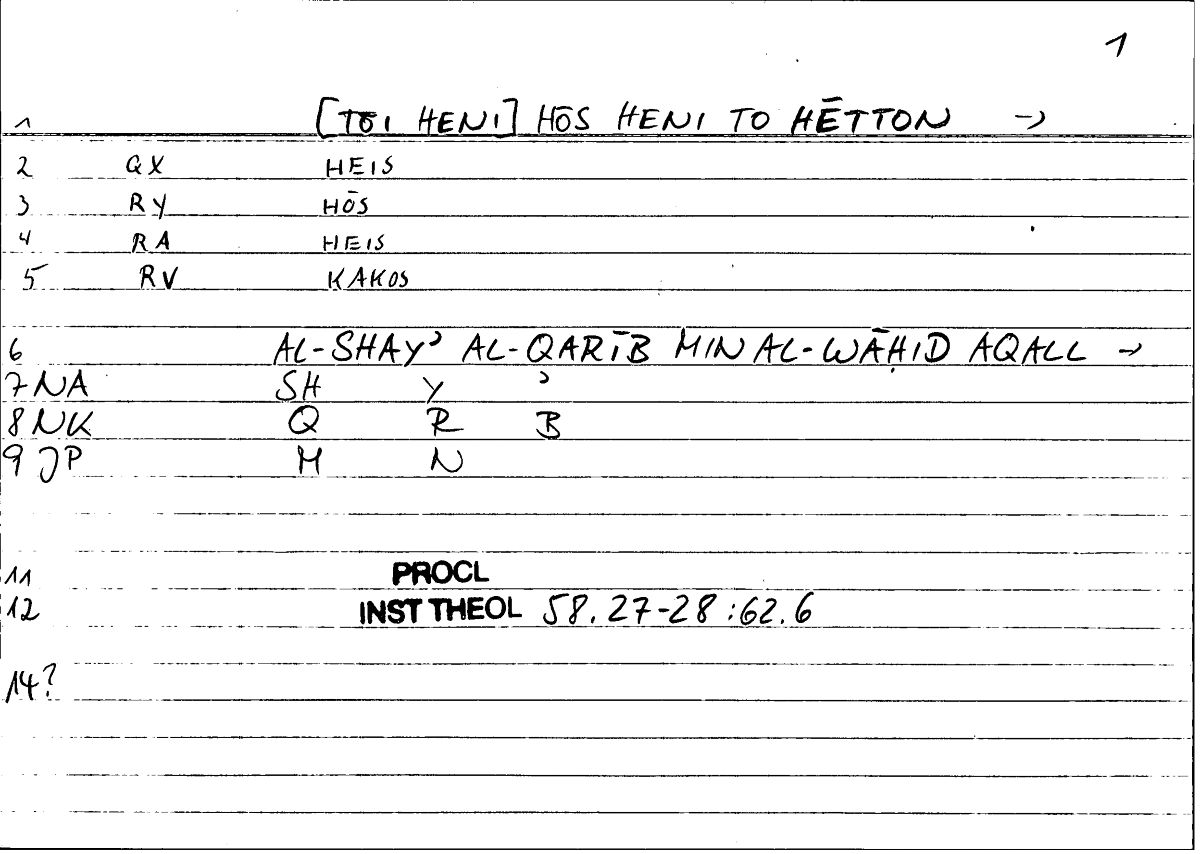 1
1 [TŌI HENI] HŌS HENI TO HĒTTON →
2 QX HEIS
3 RY HŌS
4 RA HEIS
5 RV KAKOS
6 AL-SHAYʾ AL-QARĪB MIN AL-WĀḤID AQALL →
7 NA SH Y ʾ
8 NK Q R B
9 JP M N
11 PROCL
12 INST THEOL 58.27-28:62.6
14?